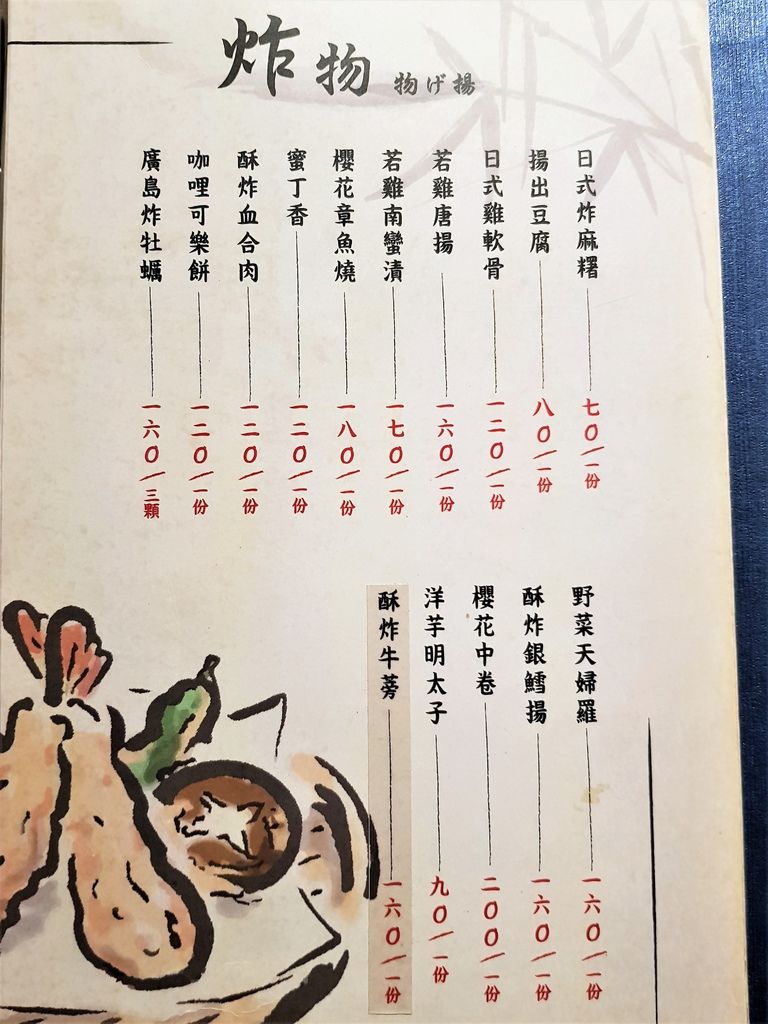 炸物 物げ揚
日式炸麻糬 七0/一份
揚出豆腐 八0/一份
日式雞軟骨 一二0/一份
若雞唐揚 一六0/一份
若雞南蠻漬 一七0/一份
櫻花章魚燒 一八0/一份
蜜丁香 一二0/一份
酥炸血合肉 一二0/一份
咖哩可樂餅 一二0/一份
廣島炸牡蠣 一六0/三顆
野菜天婦羅 一六0/一份
酥炸銀鱈揚 一六0/一份
櫻花中卷 二00/一份
洋芋明太子 九0/一份
酥炸牛蒡 一六0/一份